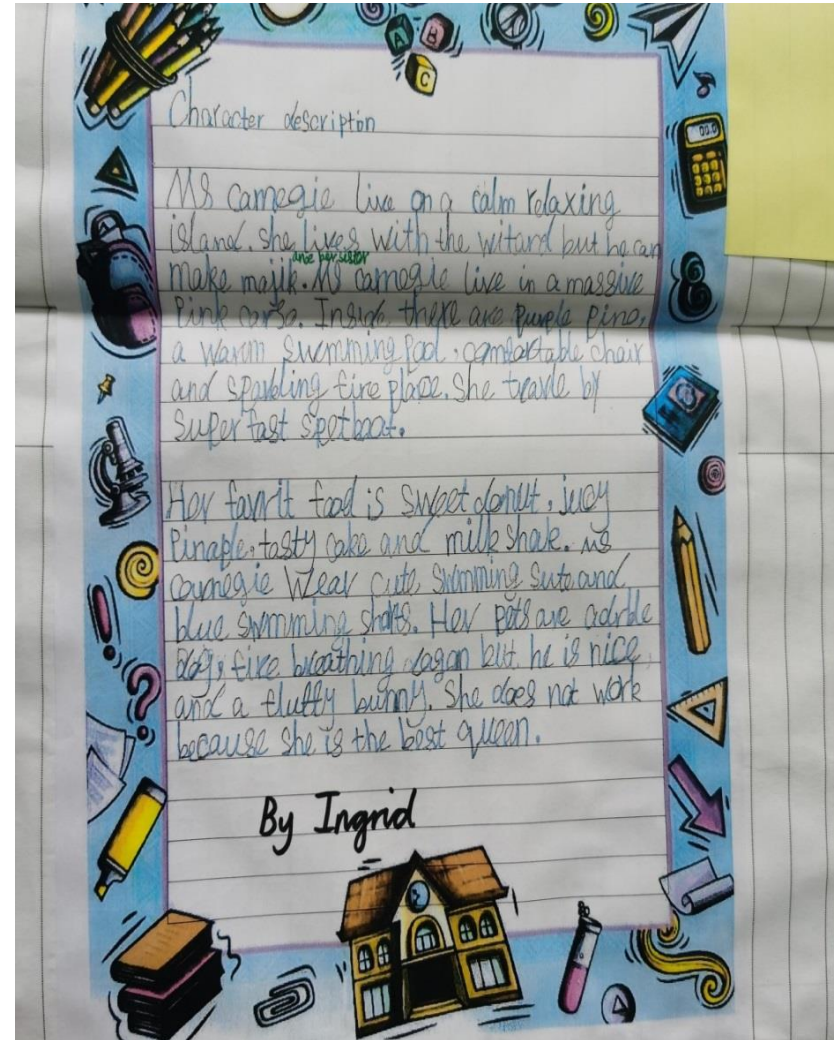 A B
C
00.0
Character description
Ms carnegie live on a calm relaxing
island. she lives with the witard but he can
and her sister
make majik. Ms carnegie live in a massive
Pink carso. Inside there are purple pino,
a warm swimming pool, comfortable chair
and sparkling fire place. She travle by
super fast spetboat.
Her favrit food is sweet donut, jucy
Pinaple, tasty cake and milk shake. Ms
carnegie wear cute, swimming sute and
blue swimming shorts. Her pets are adorble
dog, fire breathing dagan but he is nice
and a fluffy bunny. She does not work
because she is the best queen.
By Ingrid